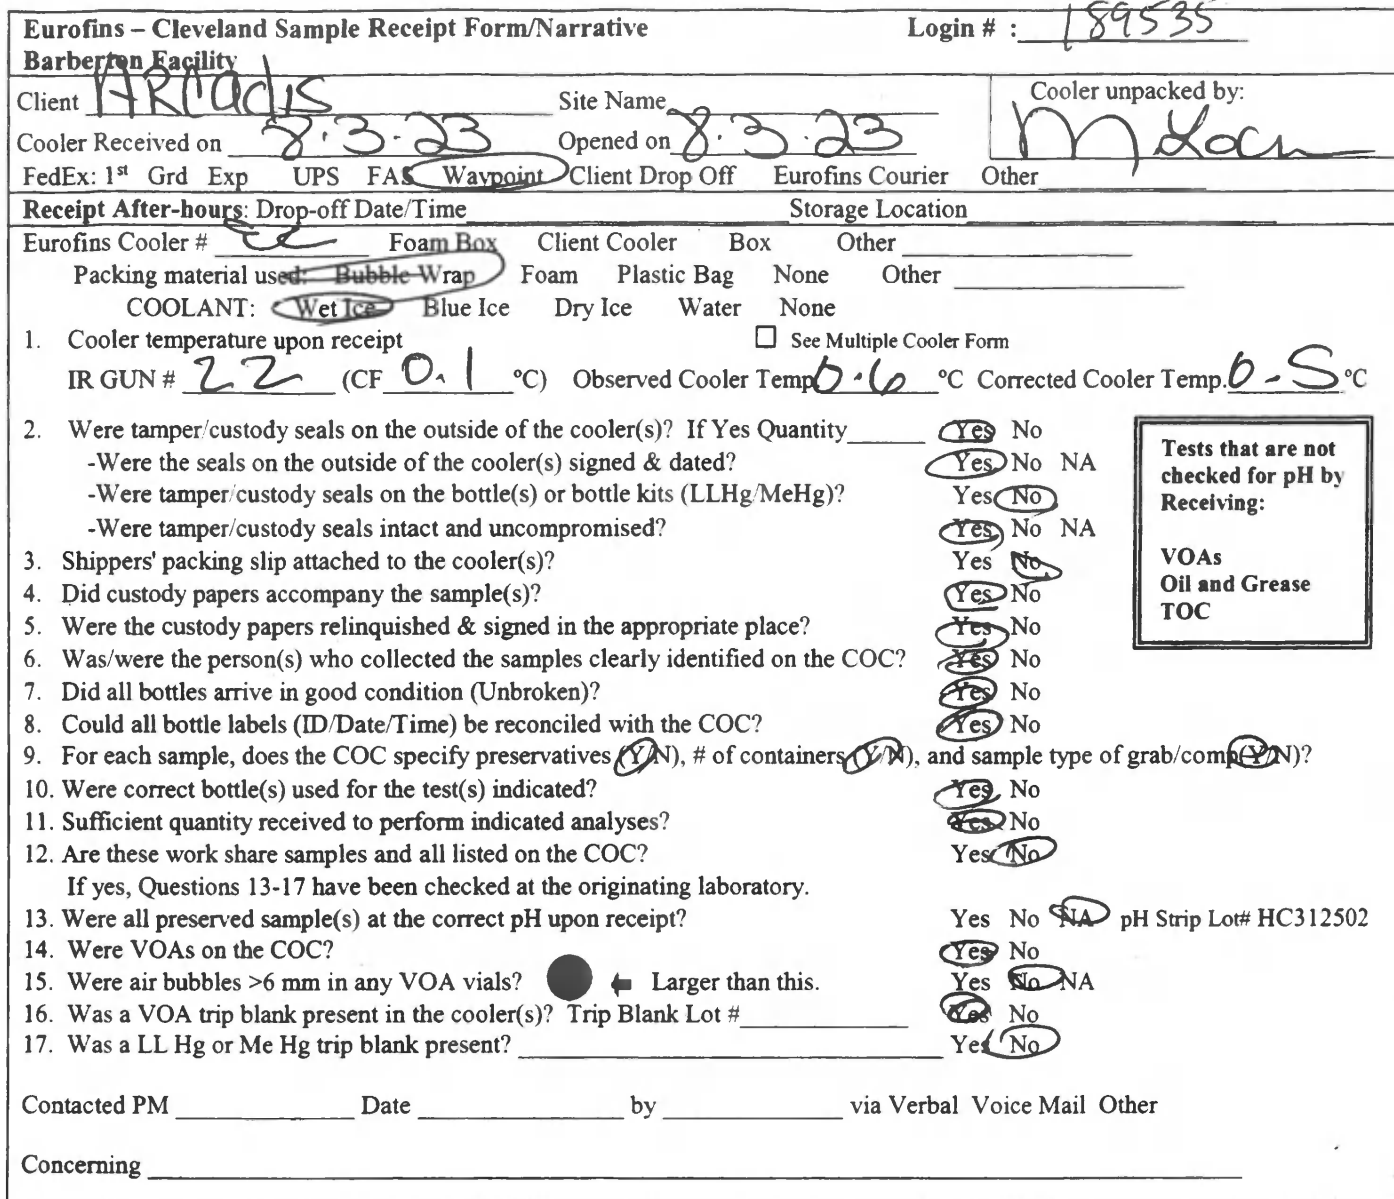 Eurofins – Cleveland Sample Receipt Form/Narrative Login # : 189535
Barberton Facility
Client Arcadis Site Name Cooler unpacked by:
Cooler Received on 8.3.23 Opened on 8.3.23 M
FedEx: 1st Grd Exp UPS FAS Waypoint Client Drop Off Eurofins Courier Other
Receipt After-hours: Drop-off Date/Time Storage Location
Eurofins Cooler # Foam Box Client Cooler Box Other
Packing material used: Bubble Wrap Foam Plastic Bag None Other
COOLANT: Wet Ice Blue Ice Dry Ice Water None
1. Cooler temperature upon receipt ☐ See Multiple Cooler Form
IR GUN # 22 (CF 0.1 °C) Observed Cooler Temp. 0.6 °C Corrected Cooler Temp. 0.5 °C
2. Were tamper/custody seals on the outside of the cooler(s)? If Yes Quantity Yes No
-Were the seals on the outside of the cooler(s) signed & dated? Yes No NA
-Were tamper/custody seals on the bottle(s) or bottle kits (LLHg/MeHg)? Yes No
-Were tamper/custody seals intact and uncompromised? Yes No NA
3. Shippers' packing slip attached to the cooler(s)? Yes No
4. Did custody papers accompany the sample(s)? Yes No
5. Were the custody papers relinquished & signed in the appropriate place? Yes No
6. Was/were the person(s) who collected the samples clearly identified on the COC? Yes No
7. Did all bottles arrive in good condition (Unbroken)? Yes No
8. Could all bottle labels (ID/Date/Time) be reconciled with the COC? Yes No
Tests that are not
checked for pH by
Receiving:
VOAs
Oil and Grease
TOC
9. For each sample, does the COC specify preservatives (Y/N), # of containers (Y/N), and sample type of grab/comp(Y/N)?
10. Were correct bottle(s) used for the test(s) indicated? Yes No
11. Sufficient quantity received to perform indicated analyses? Yes No
12. Are these work share samples and all listed on the COC? Yes No
If yes, Questions 13-17 have been checked at the originating laboratory.
13. Were all preserved sample(s) at the correct pH upon receipt? Yes No NA pH Strip Lot# HC312502
14. Were VOAs on the COC? Yes No
15. Were air bubbles >6 mm in any VOA vials? Larger than this. Yes No NA
16. Was a VOA trip blank present in the cooler(s)? Trip Blank Lot # Yes No
17. Was a LL Hg or Me Hg trip blank present? Yes No
Contacted PM Date by via Verbal Voice Mail Other
Concerning